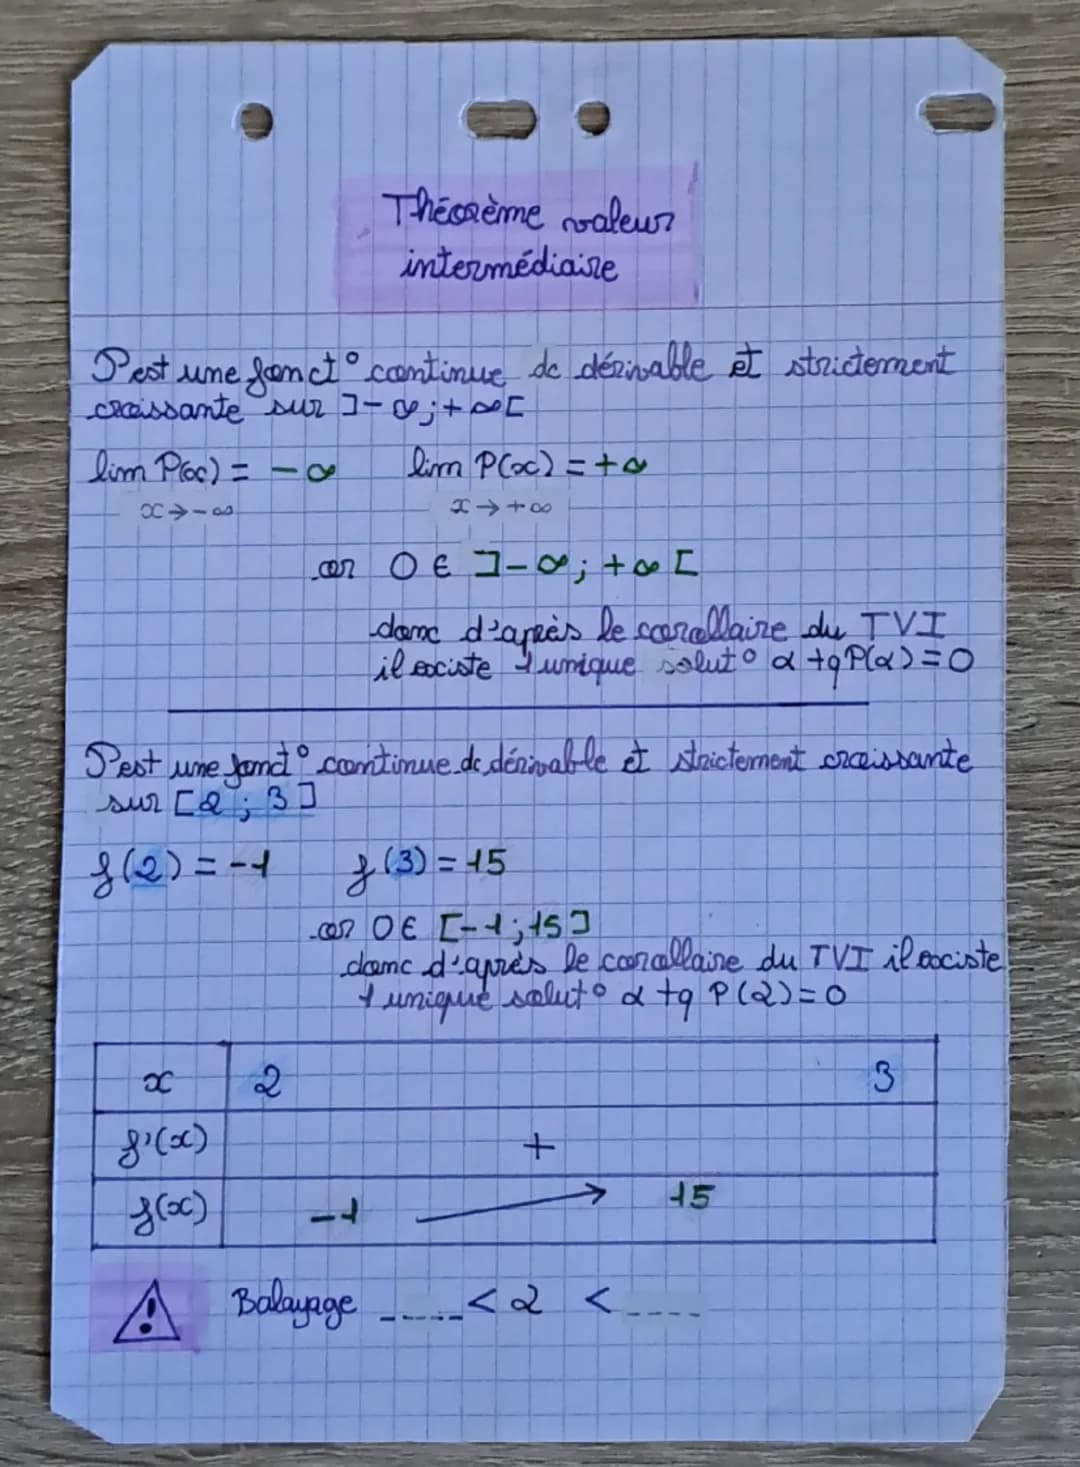 Théorème valeur
intermédiaire
P est une fonct° continue dc dérivable et strictement
croissante sur ]-∞;+∞[
lim P(x) = -∞ lim P(x) = +∞
x→-∞ x→+∞
or 0 ∈ ]-∞;+∞[
donc d'après le corollaire du TVI
il existe 1 unique solut° α tq P(α)=0
P est une fonct° continue dc dérivable et strictement croissante
sur [2;3]
f(2) = -1 f(3) = 15
or 0 ∈ [-1;15]
donc d'après le corollaire du TVI il existe
1 unique solut° α tq P(2)=0
x 2 3
f'(x) +
f(x) -1 → 15
Balayage ----- < 2 < ----